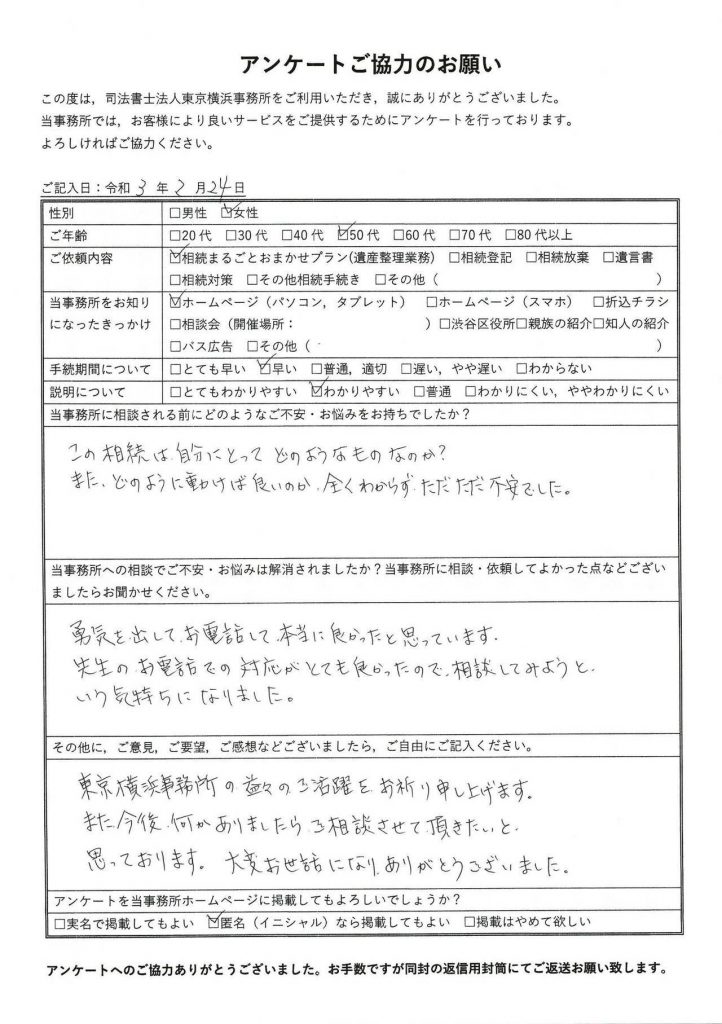 アンケートご協力のお願い
この度は，司法書士法人東京横浜事務所をご利用いただき，誠にありがとうございました。
当事務所では，お客様により良いサービスをご提供するためにアンケートを行っております。
よろしければご協力ください。
ご記入日：令和 3 年 2 月 24 日
性別 □男性 ☑女性
ご年齢 □20代 □30代 □40代 ☑50代 □60代 □70代 □80代以上
ご依頼内容 ☑相続まるごとおまかせプラン(遺産整理業務) □相続登記 □相続放棄 □遺言書
□相続対策 □その他相続手続き □その他（ ）
当事務所をお知り ☑ホームページ（パソコン，タブレット） □ホームページ（スマホ） □折込チラシ
になったきっかけ □相談会（開催場所： ）□渋谷区役所□親族の紹介□知人の紹介
□バス広告 □その他（ ）
手続期間について □とても早い ☑早い □普通，適切 □遅い，やや遅い □わからない
説明について □とてもわかりやすい ☑わかりやすい □普通 □わかりにくい，ややわかりにくい
当事務所に相談される前にどのようなご不安・お悩みをお持ちでしたか？
この相続は、自分にとって どのようなものなのか？
また、どのように動けば良いのか、全くわからず、ただただ不安でした。
当事務所への相談でご不安・お悩みは解消されましたか？当事務所に相談・依頼してよかった点などござい
ましたらお聞かせください。
勇気を出して、お電話して、本当に良かったと思っています。
先生の お電話での 対応がとても良かったので、相談してみようと、
いう気持ちになりました。
その他に，ご意見，ご要望，ご感想などございましたら，ご自由にご記入ください。
東京横浜事務所の益々のご活躍を お祈り申し上げます。
また今後、何かありましたら ご相談させて頂きたいと、
思っております。 大変お世話になり、ありがとうございました。
アンケートを当事務所ホームページに掲載してもよろしいでしょうか？
□実名で掲載してもよい ☑匿名（イニシャル）なら掲載してもよい □掲載はやめて欲しい
アンケートへのご協力ありがとうございました。お手数ですが同封の返信用封筒にてご返送お願い致します。